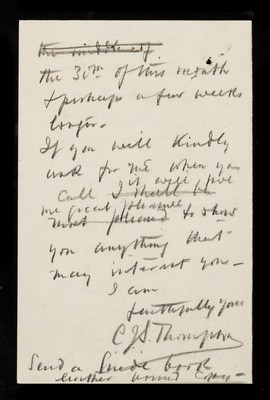 the middle of
the 30th of this month
& perhaps a few weeks
longer.
If you will kindly
ask for me when you
call I shall be
it will give
me great pleasure
most pleased to show
you anything that
may interest you —
I am
faithfully yours
C.J.S. Thompson
Send a guide book
leather bound copy —